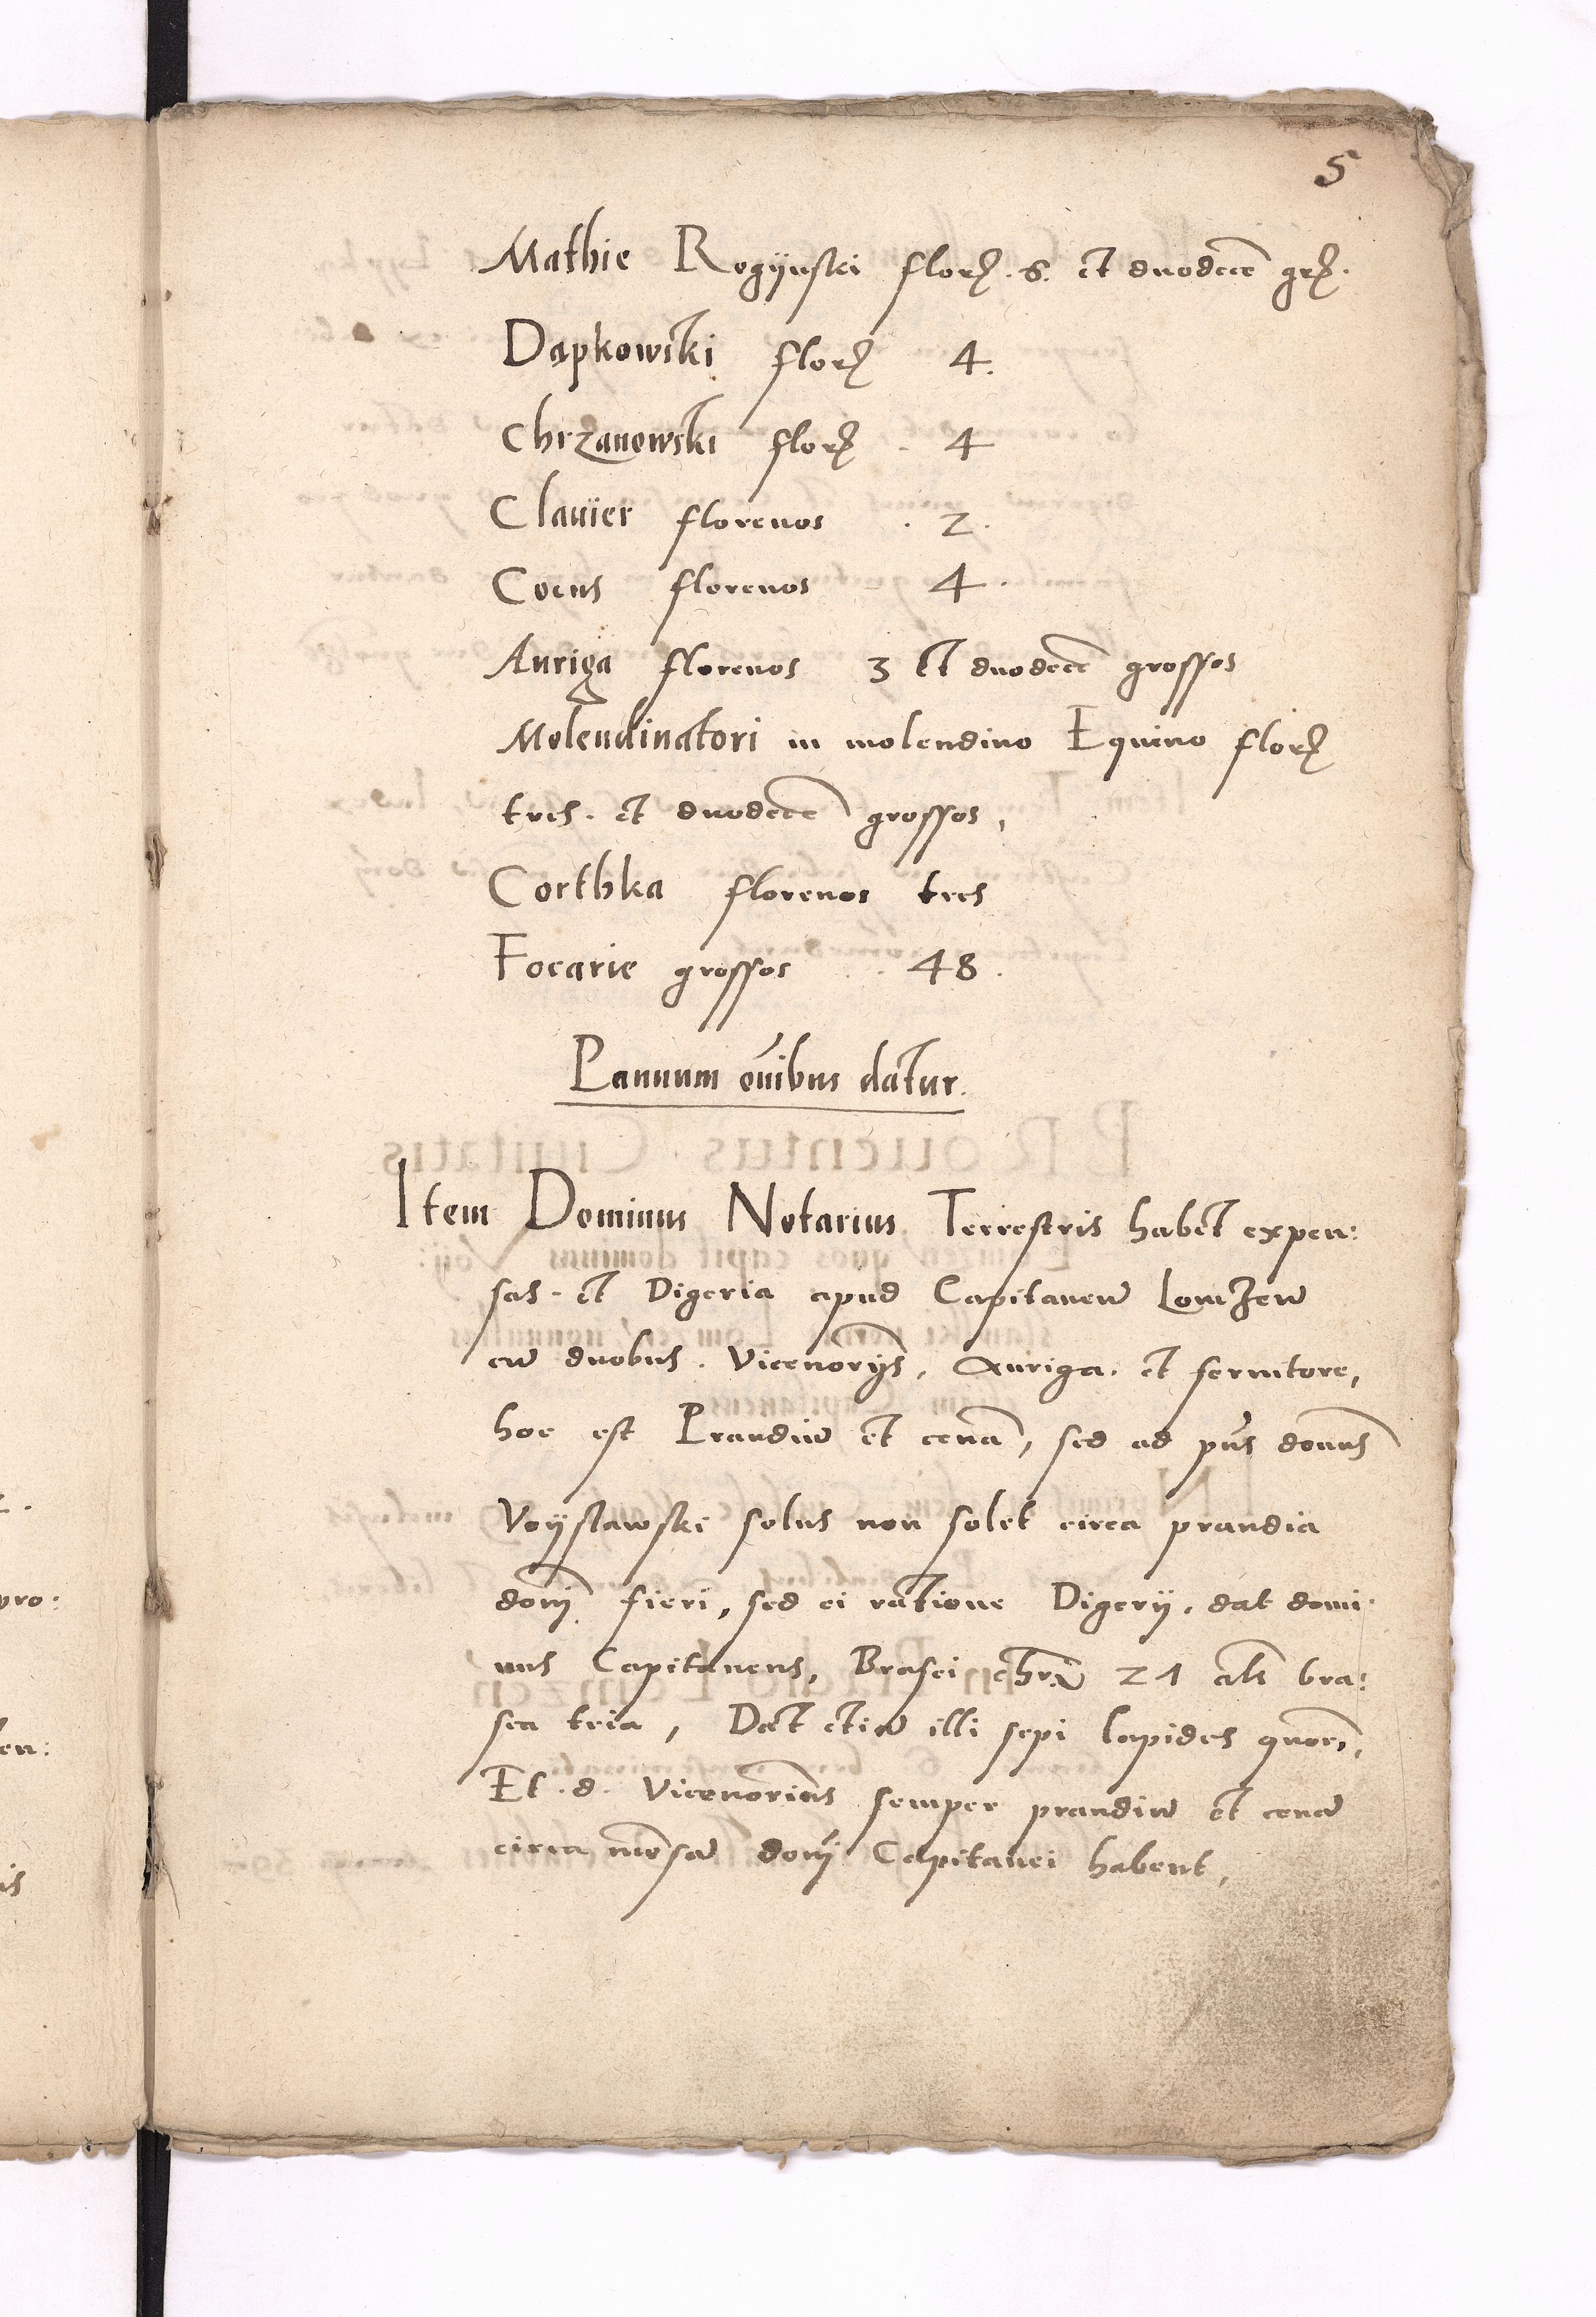 5
Mathie Rogÿnski flor. 6. et duodece gr.
Dapkowski flor 4.
Chrzanowski flor . 4
Clauier florenos . 2.
Cocus florenos 4.
Auriga florenos 3 et duodecē grossos
Molendinatori in molendino Equino flor
tres. et duodecē grossos,
Corthka florenos tres
Focarie grossos . 48.
Pannum oībus datur.
Item Dominus Notarius Terrestris habet expen:
sas. et Digeria apud Capitaneū Lomzen
cū duobus. Vicenorijs, Auriga. et seruitore,
hoc est Prandiū et cenā, sed ad pn̄s domns
Voyslawski solus non solet circa prandia
domj fieri, sed ei ratione Digerij, dat domi:
nus Capitaneus, Brasei 21 als bra:
sea tria, Dat etiā illi sepi lapides quor,
Et. d. Vicenorius semper prandiū et cenā
circa mēsā domj Capitanei habent,
pro:
en:
is